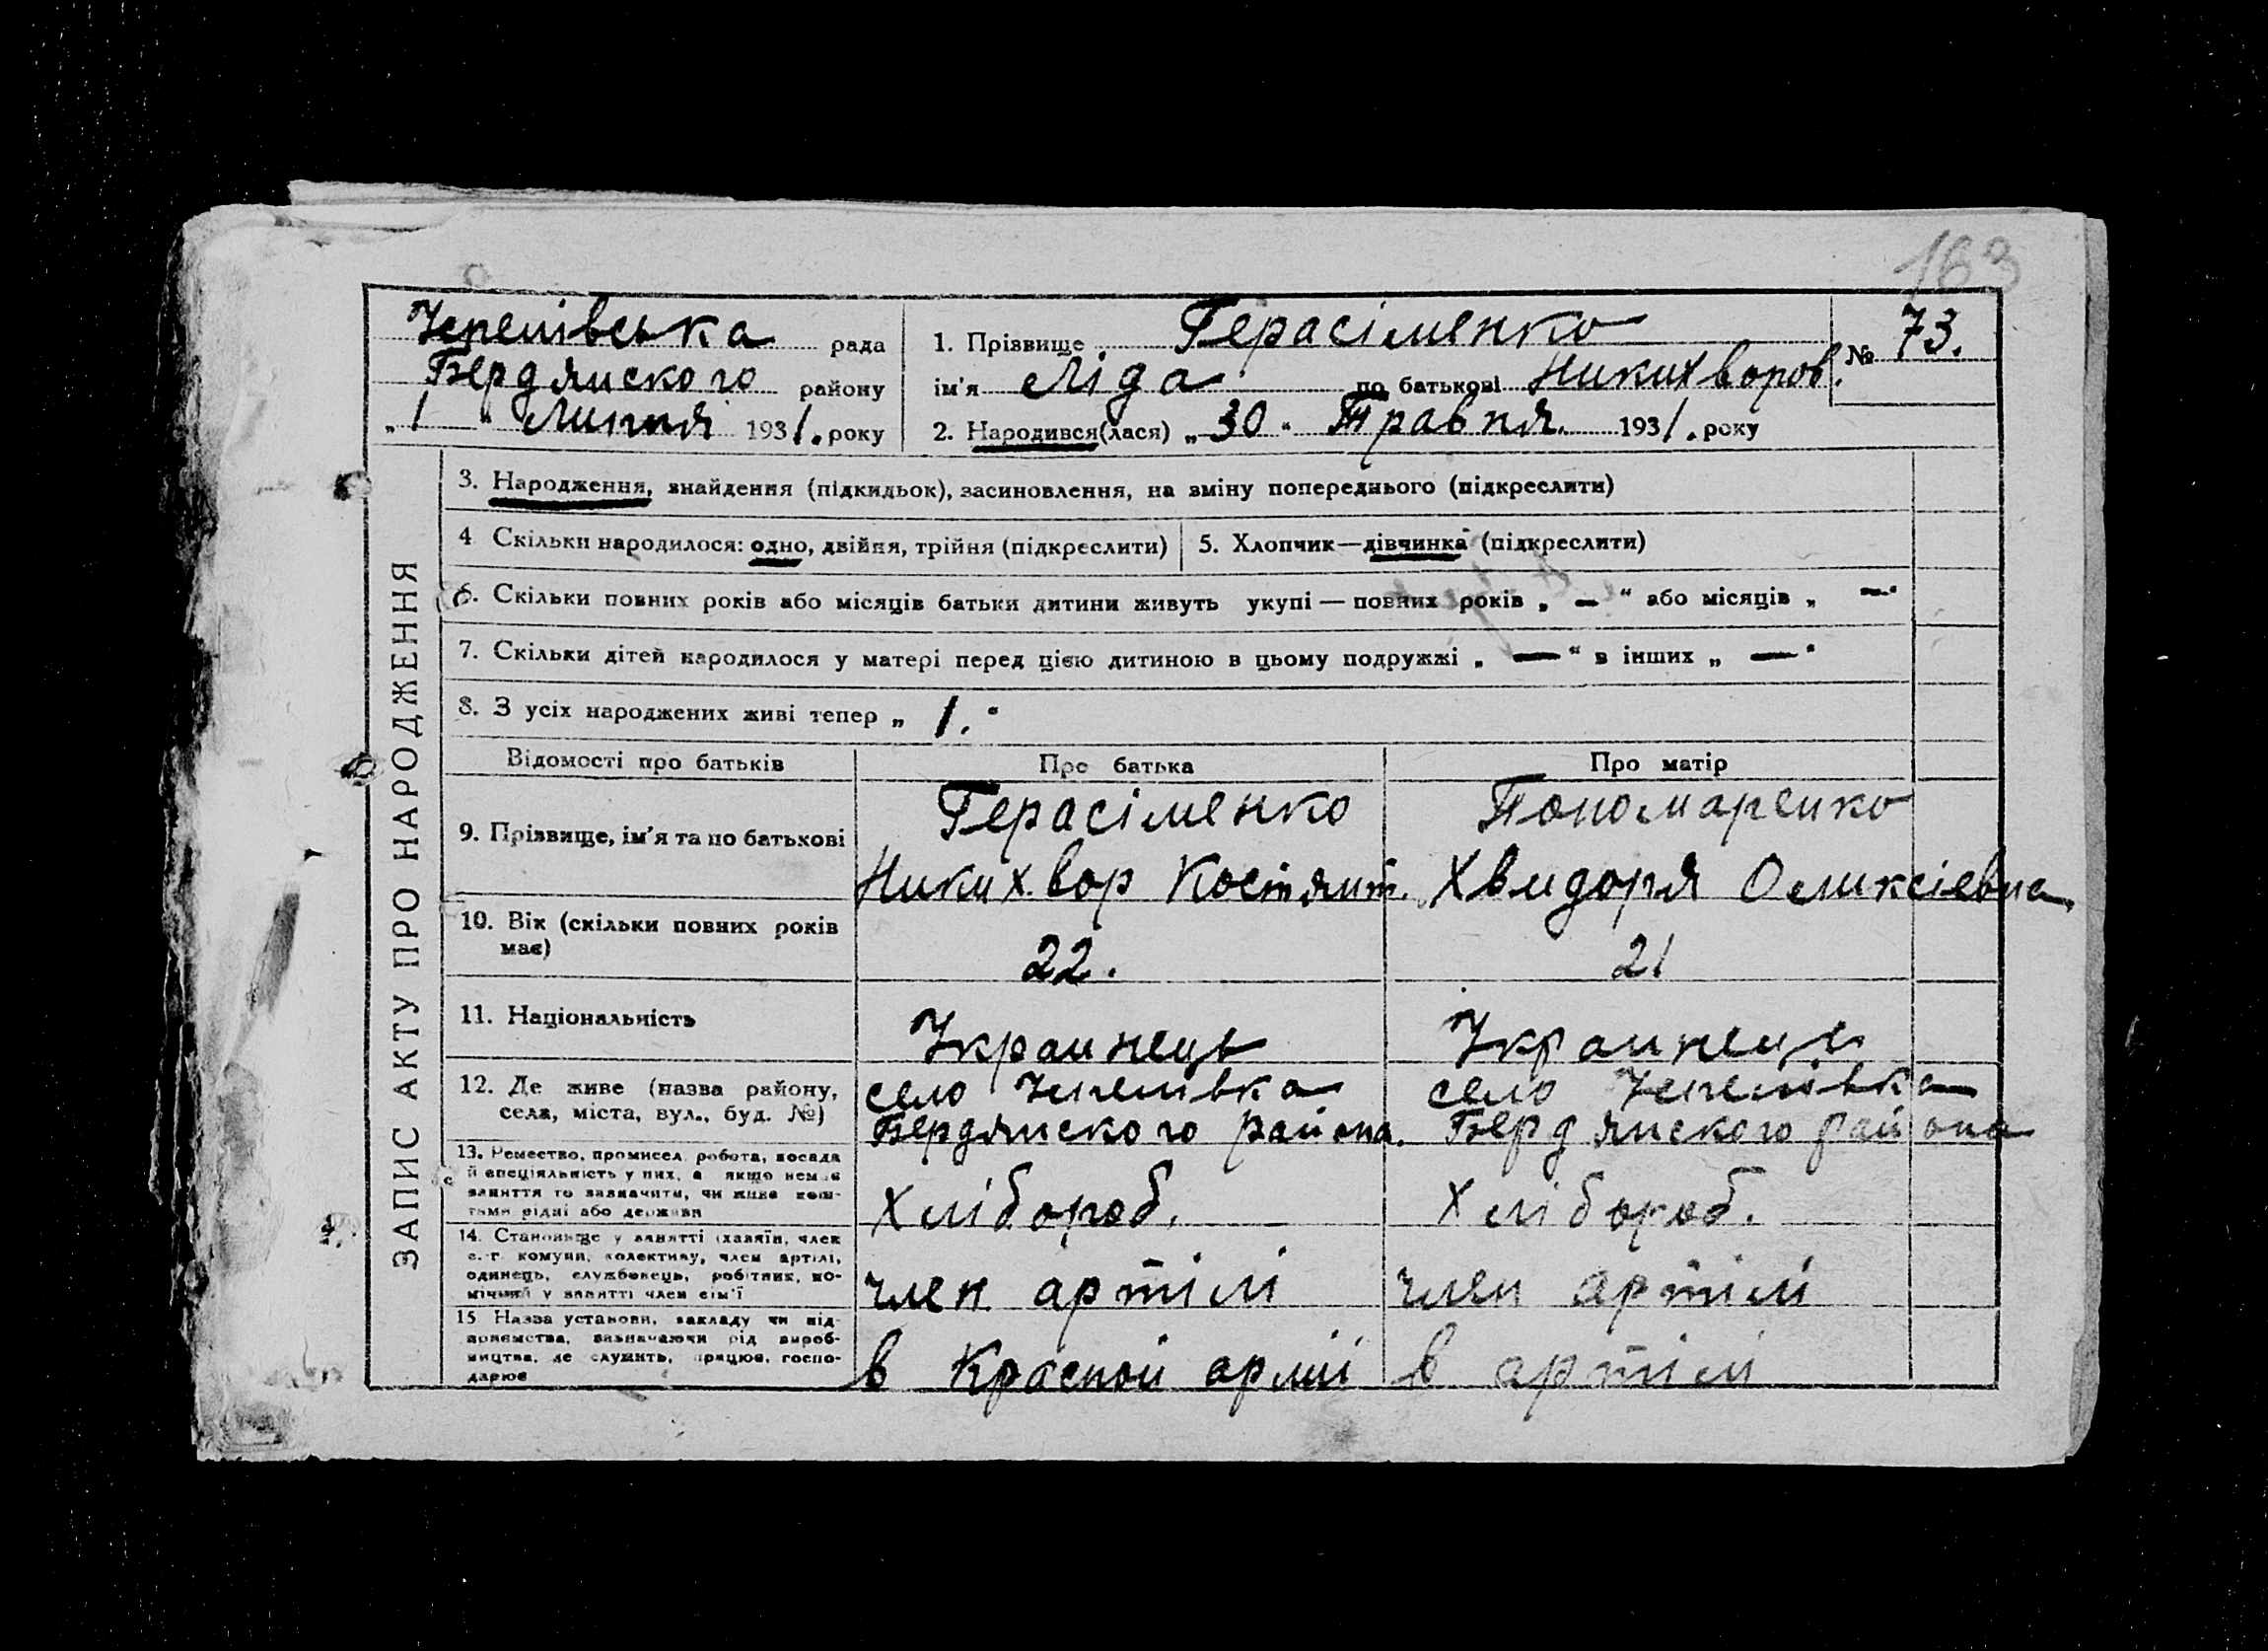 163
Чепелівська рада
Бердянського району
„ 1 " Липня 1931. року
1. Прізвище Герасіменко
ім'я Ліда по батькові Никихворов.
2. Народився(лася) „ 30 " Травня. 1931. року
№ 73.
ЗАПИС АКТУ ПРО НАРОДЖЕННЯ
3. Народження, знайдення (підкидьок), засиновлення, на зміну попереднього (підкреслити)
4 Скільки народилося: одно, двійня, трійня (підкреслити)
5. Хлопчик—дівчинка (підкреслити)
6. Скільки повних років або місяців батьки дитини живуть укупі — повних років „ — “ або місяців „ — "
7. Скільки дітей народилося у матері перед цією дитиною в цьому подружжі „ — “ в інших „ — "
8. З усіх народжених живі тепер „ 1. "
Відомості про батьків Про батька Про матір
9. Прізвище, ім'я та по батькові
Герасіменко
Никихвор Костянт.
Пономаренко
Хвидоря Оликсіевна.
10. Вік (скільки повних років
має)
22.
21
11. Національність
Украинець
Украинець
12. Де живе (назва району,
села, міста, вул., буд. №)
село Чепелівка
Бердянского района.
село Чепелівка
Бердянского района
13. Ремество, промисел, робота, посада
й спеціяльність у них, а якщо немає
заняття то зазначити, чи живе кош-
тами рідні або держави
Хлібороб.
Хлібороб.
14. Становище у занятті (хазяїн, член
с.-г. комуни, колективу, член артілі,
одинець, службовець, робітник, по-
мічний у занятті член сім'ї
член артілі
член артілі
15 Назва установи, закладу чи під-
приємства, зазначаючи рід вироб-
ництва, де служить, працює, госпо-
дарює
в Красной армії
в артілі